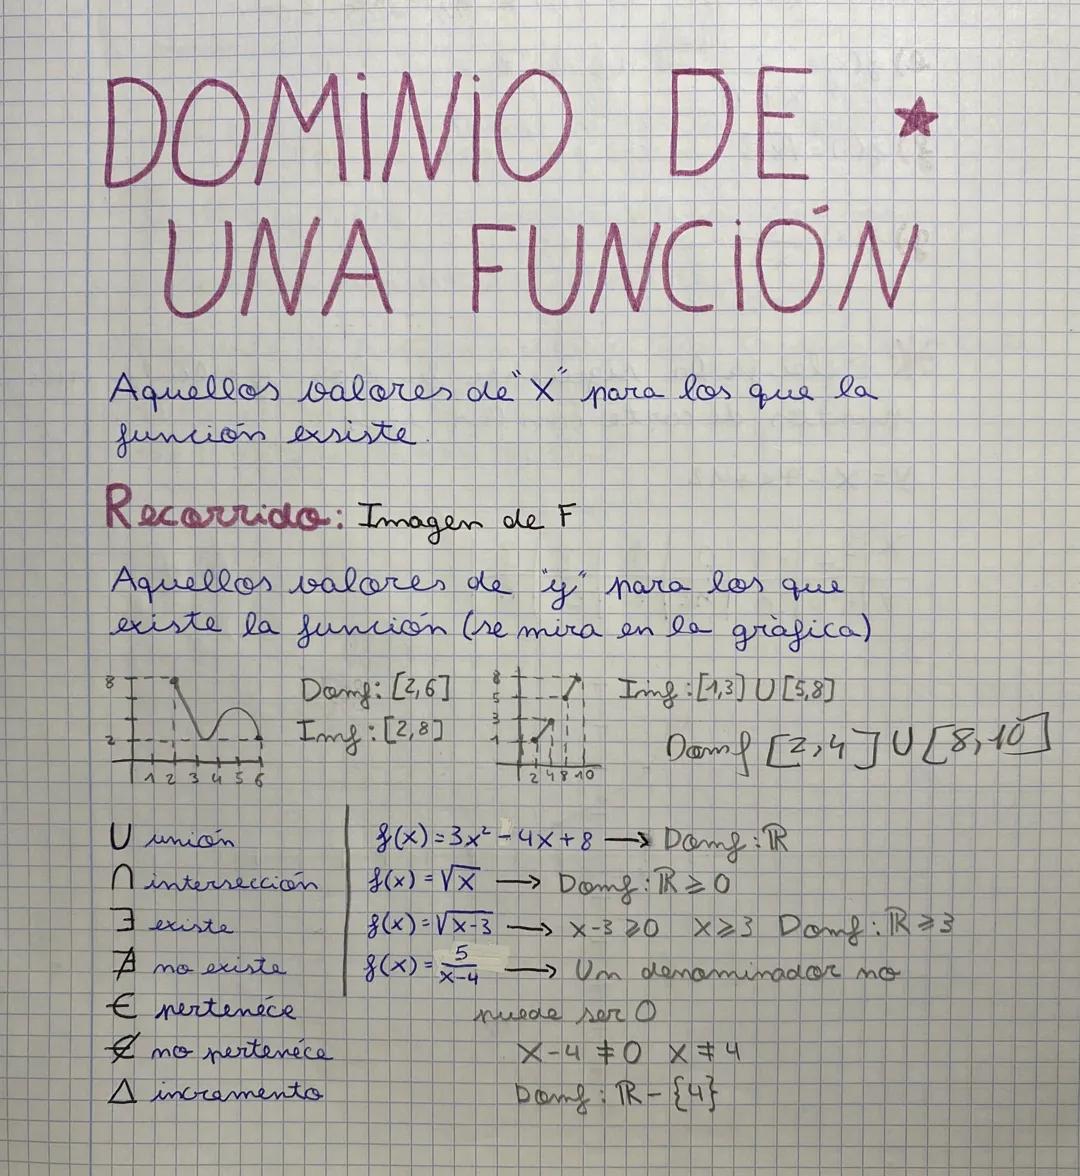 DOMINIO DE
UNA FUNCIÓN
Aquellos valores de "X" para los que la
función exsiste.
Recorrido: Imagen de F
Aquellos valores de "y" para los que
existe la función (se mira en la gráfica)
8
2
1 2 3 4 5 6
Domf: [2,6]
Imf: [2,8]
8
5
3
1
2 4 8 10
Imf: [1,3] U [5,8]
Domf [2,4] U [8,10]
U unión
∩ intersección
∃ existe
∄ no existe
∈ pertenéce
∉ no pertenéce
Δ incremento
f(x) = 3x² - 4x + 8 → Domf: ℝ
f(x) = √x → Domf: ℝ ≥ 0
f(x) = √x-3 → x-3 ≥ 0 x ≥ 3 Domf: ℝ ≥ 3
f(x) = 5/x-4 → Un denominador no
puede ser 0
x-4 ≠ 0 x ≠ 4
Domf: ℝ - {4}